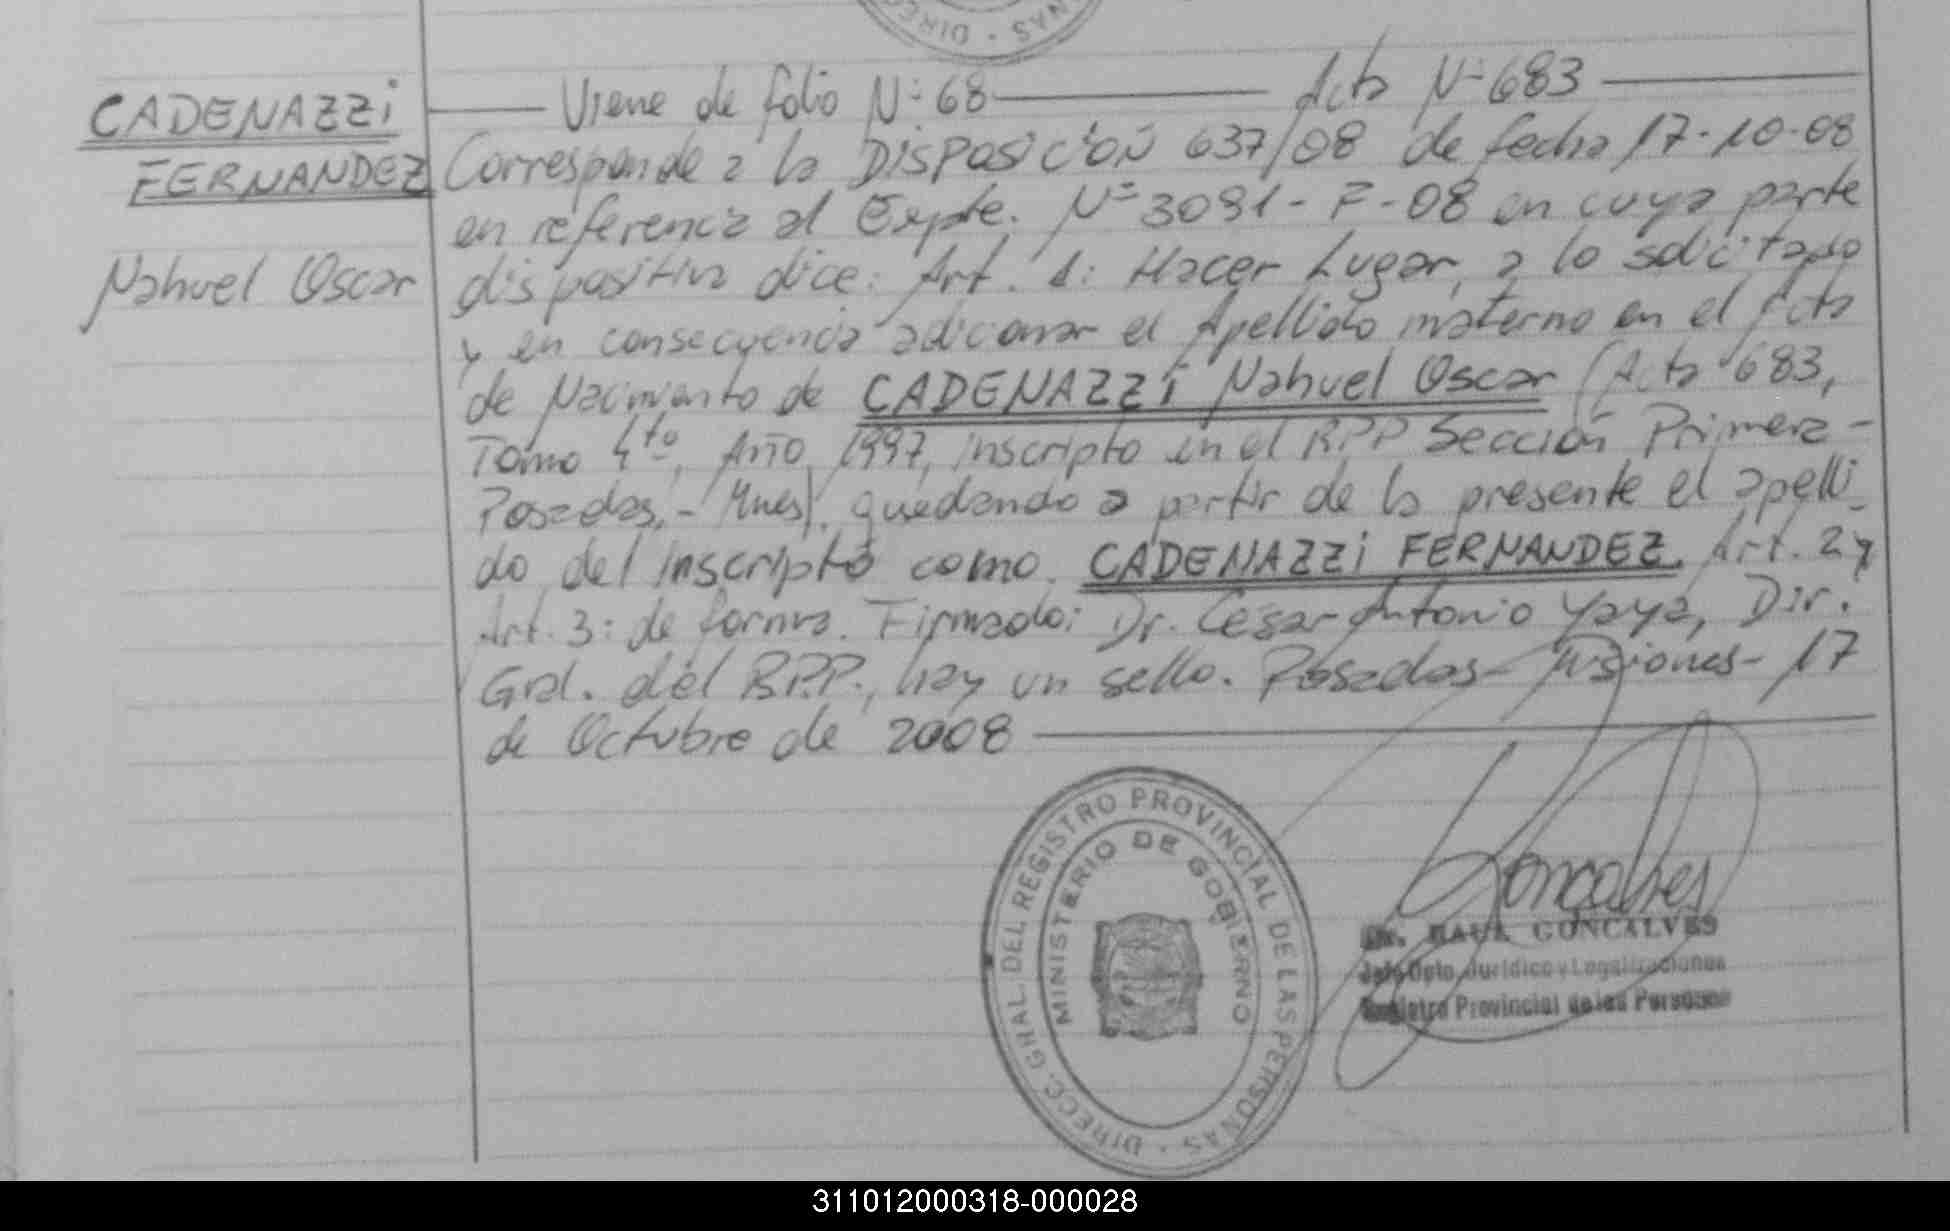 DIRECC
NAS
CADENAZZI
FERNANDEZ
Nahuel Oscar
Viene de folio Nº 68 Acta Nº 683
Corresponde a la DISPOSICIÓN 637/08 de fecha 17-10-08
en referencia al Expte. Nº 3091-F-08 en cuya parte
dispositiva dice: Art. 1: Hacer Lugar, a lo solicitado
y en consecuencia adicionar el Apellido materno en el Acta
de Nacimiento de CADENAZZI Nahuel Oscar (Acta 683,
Tomo 4to, Año 1997, inscripto en el RPP Sección Primera-
Posadas,- Mnes). quedando a partir de la presente el apelli-
do del inscripto como CADENAZZI FERNANDEZ. Art. 2 y
Art. 3: de forma. Firmado: Dr. César Antonio Yaya, Dir.
Gral. del R.P.P., hay un sello. Posadas- Misiones- 17
de Octubre de 2008
DIRECC. GRAL. DEL REGISTRO PROVINCIAL DE LAS PERSONAS
MINISTERIO DE GOBIERNO
Goncalves
Dr. RAUL GONCALVES
Jefe Dpto. Jurídico y Legalizaciones
Registro Provincial de las Personas
311012000318-000028